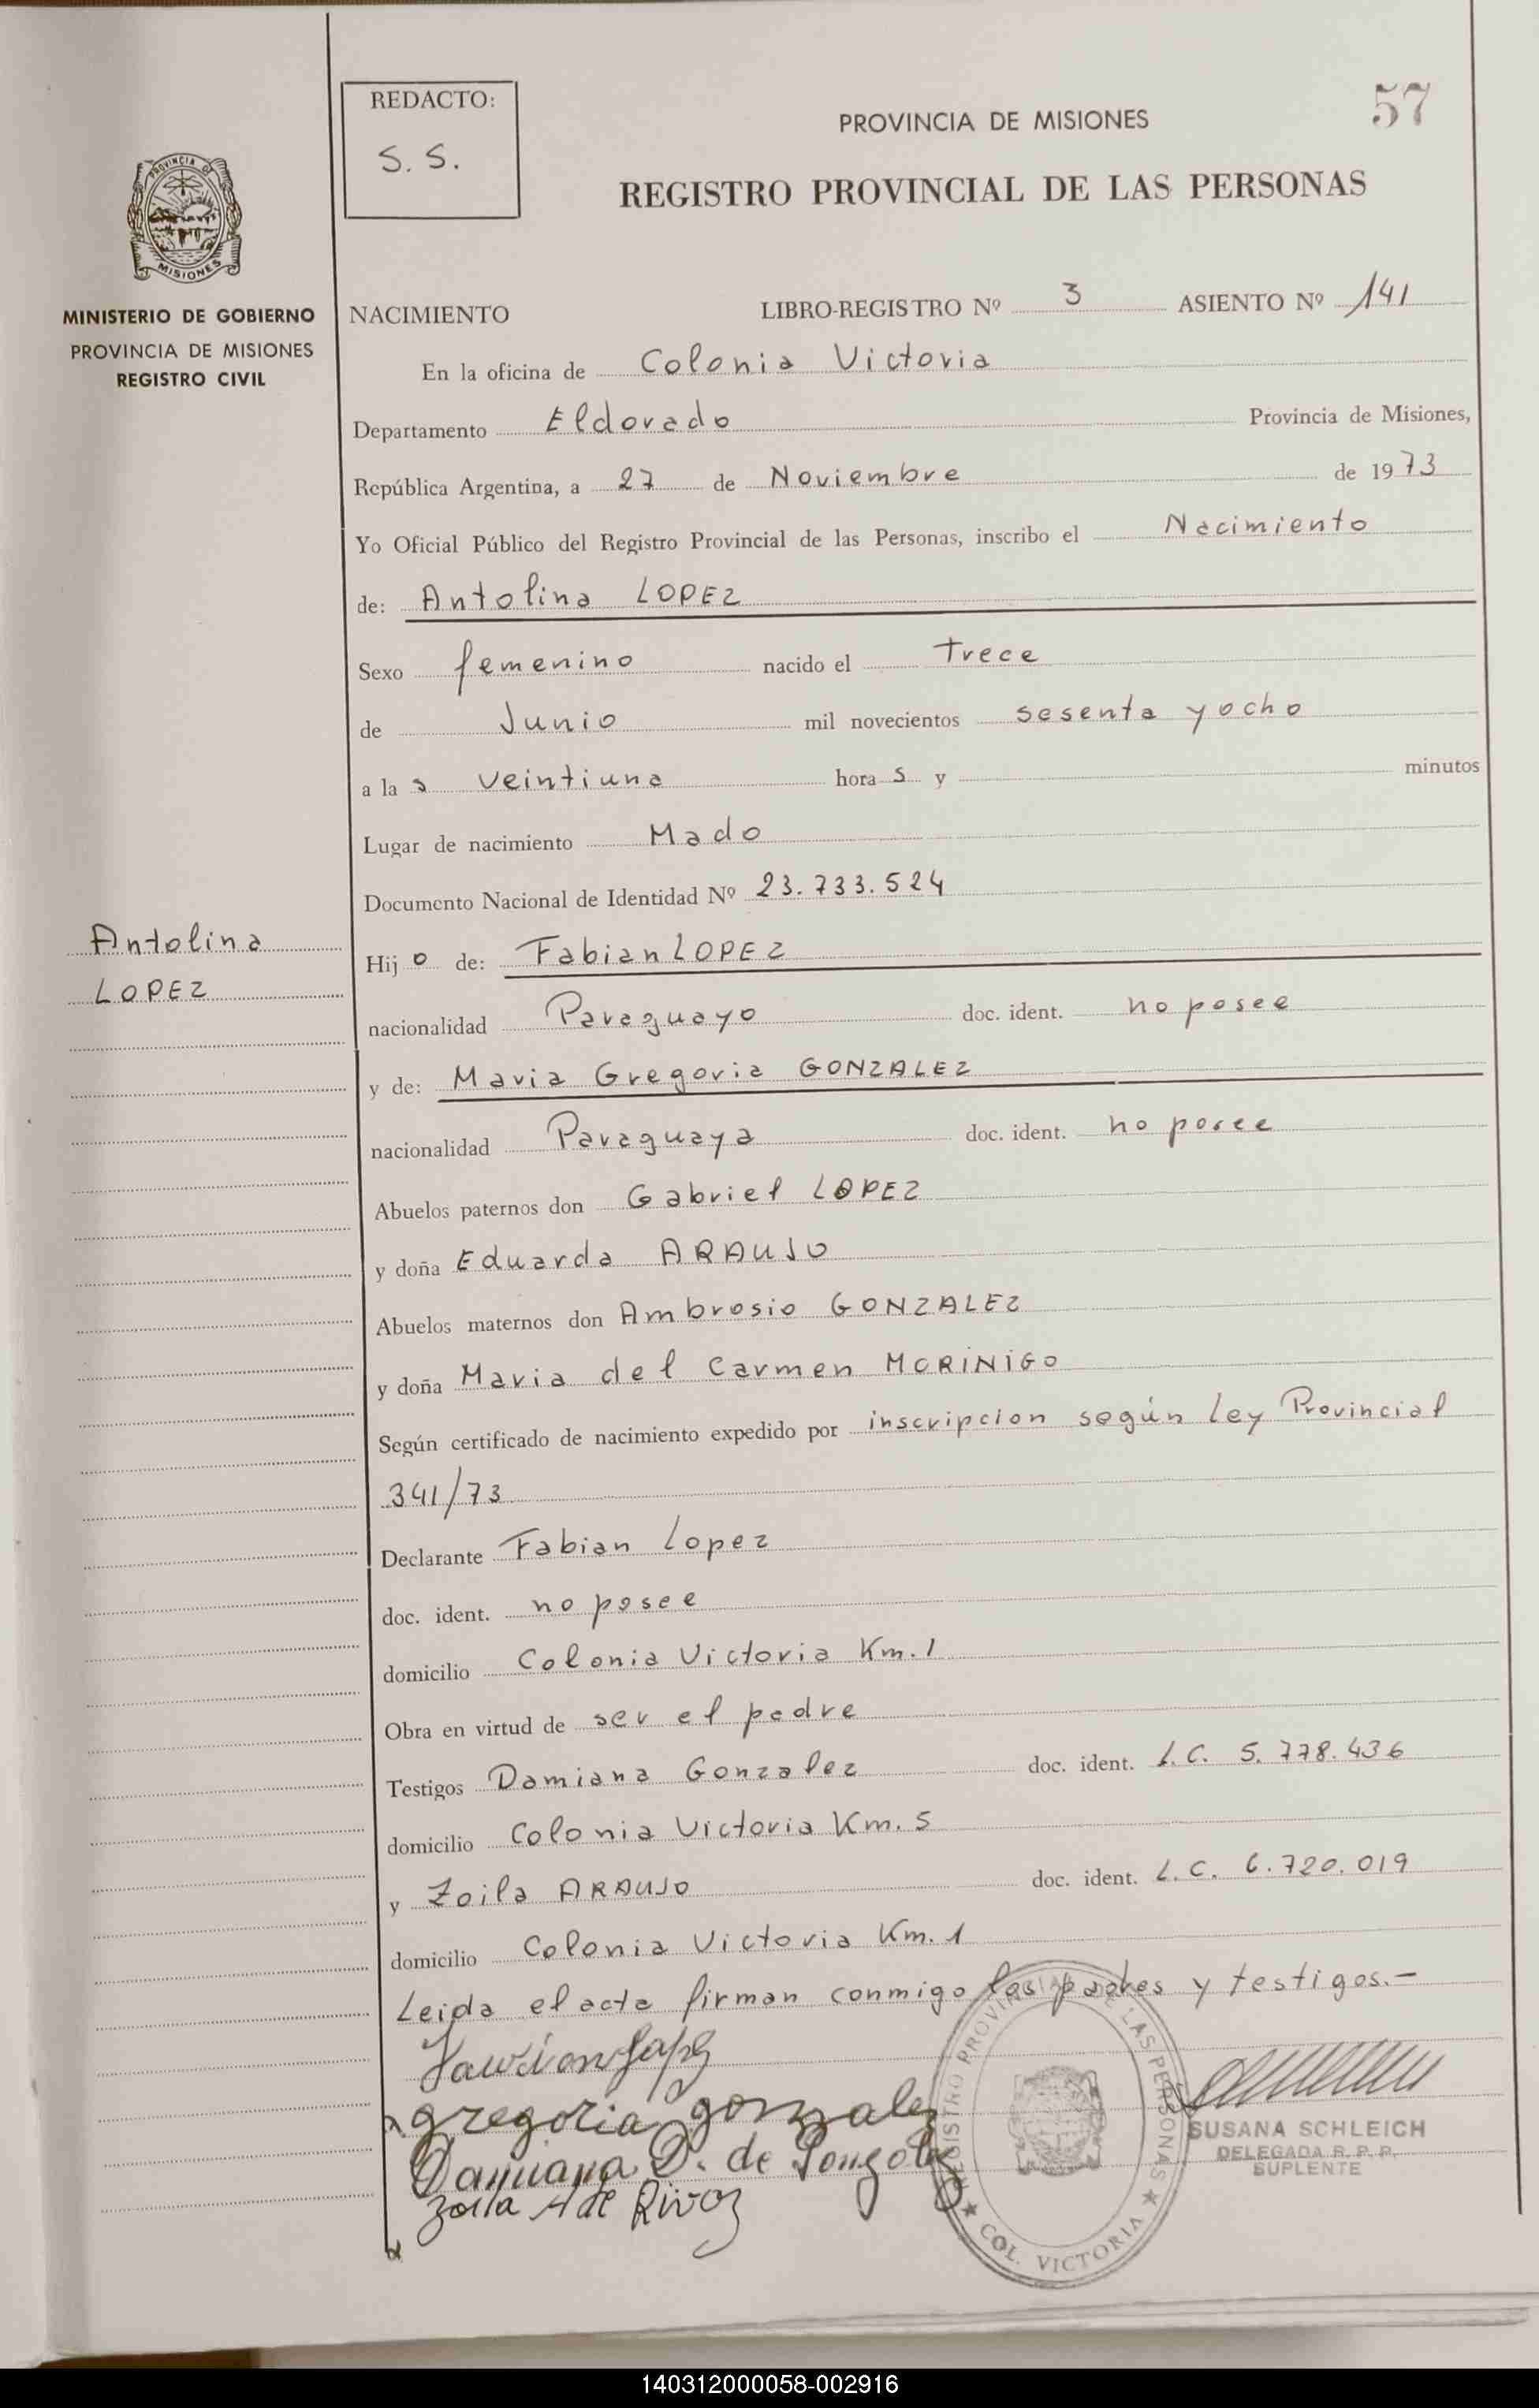 57
REDACTO:
S. S.
PROVINCIA DE MISIONES
REGISTRO PROVINCIAL DE LAS PERSONAS
PROVINCIA DE
MISIONES
MINISTERIO DE GOBIERNO
PROVINCIA DE MISIONES
REGISTRO CIVIL
NACIMIENTO LIBRO-REGISTRO Nº 3 ASIENTO Nº 141
En la oficina de Colonia Victoria
Departamento Eldorado Provincia de Misiones,
República Argentina, a 27 de Noviembre de 1973
Yo Oficial Público del Registro Provincial de las Personas, inscribo el Nacimiento
de: Antolina LOPEZ
Sexo femenino nacido el trece
de Junio mil novecientos sesenta y ocho
a la s veintiuna hora s y minutos
Lugar de nacimiento Mado
Documento Nacional de Identidad Nº 23.733.524
Antolina
LOPEZ
Hij o de: Fabian LOPEZ
nacionalidad Paraguayo doc. ident. no posee
y de: Maria Gregoria GONZALEZ
nacionalidad Paraguaya doc. ident. no posee
Abuelos paternos don Gabriel LOPEZ
y doña Eduarda ARAUJO
Abuelos maternos don Ambrosio GONZALEZ
y doña Maria del Carmen MORINIGO
Según certificado de nacimiento expedido por inscripcion según Ley Provincial
341/73
Declarante Fabian Lopez
doc. ident. no posee
domicilio Colonia Victoria Km. 1
Obra en virtud de ser el padre
Testigos Damiana Gonzalez doc. ident. L.C. 5.778.436
domicilio Colonia Victoria Km. 5
y Zoila ARAUJO doc. ident. L.C. 6.720.019
domicilio Colonia Victoria Km. 1
Leida el acta firman conmigo los padres y testigos.-
gregoria gonzalez
Damiana D. de Gonzalez
Zoila A de
REGISTRO PROVINCIAL DE LAS PERSONAS
★ COL. VICTORIA ★
SUSANA SCHLEICH
DELEGADA R. P. P.
SUPLENTE
140312000058-002916